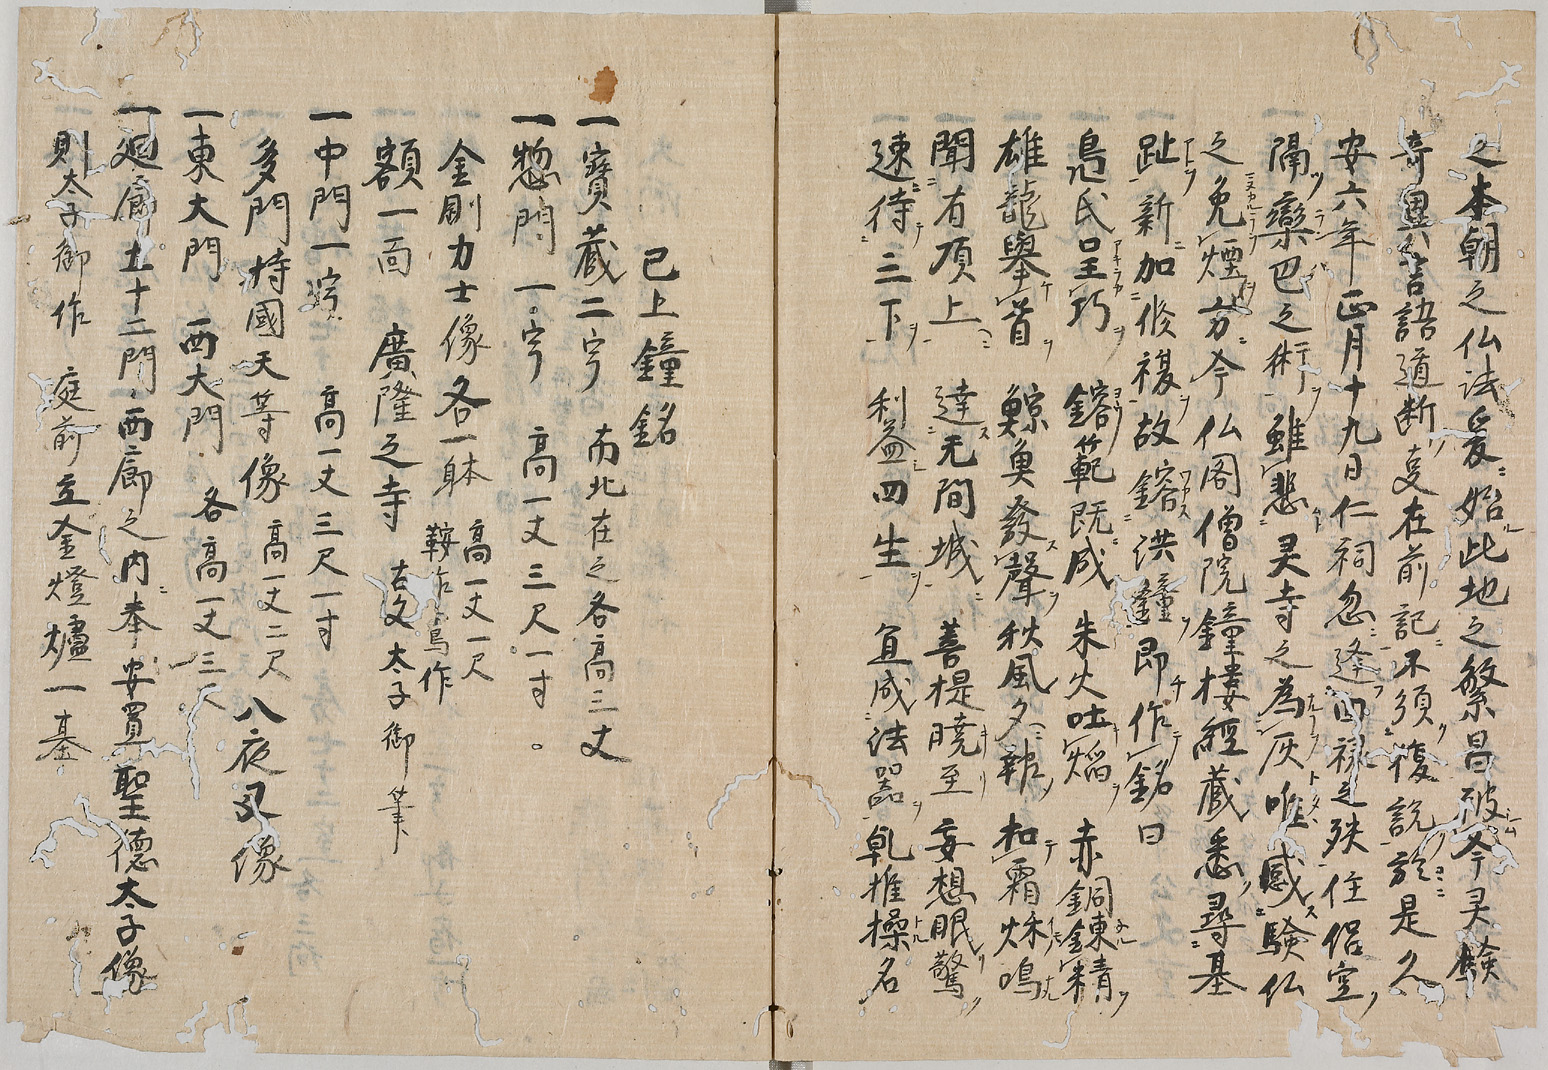 之本朝之仏法爰始此地之繁昌破今灵験
奇異言語道断妻在前記不須復説於是久
安六年正月十九日仁祠忽逢回禄之殃住侶空
隔欒巴之術雖悲灵寺之為灰唯感験仏
之免煙方今仏閣僧院鐘楼經蔵悉尋基
趾新加俢複故鎔洪鐘即作銘曰
鳧氏呈巧 鎔範既成 朱火吐熖 赤銅錬精
雄龍舉首 鯨魚發聲 秋風夕報 和霜秌鳴
聞有頂上 達无間城 菩提曉至 妄想眠驚
速侍三下 利益四生 宜成法器 乹推操名
已上鐘銘
一寳蔵二宇 南北在之各高三丈
一惣門一宇 高一丈三尺一寸
金剛力士像各一躰 高一丈一尺 鞍作鳥作
額一面 廣隆之寺 古文太子御筆
一中門一宇 高一丈三尺一寸
多門持國天等像 高一丈二尺 八夜叉像
一東大門 西大門 各高一丈三尺
一廻廊土十二門 西廊之内奉安置聖德太子像
則太子御作 庭前立金燈爐一基